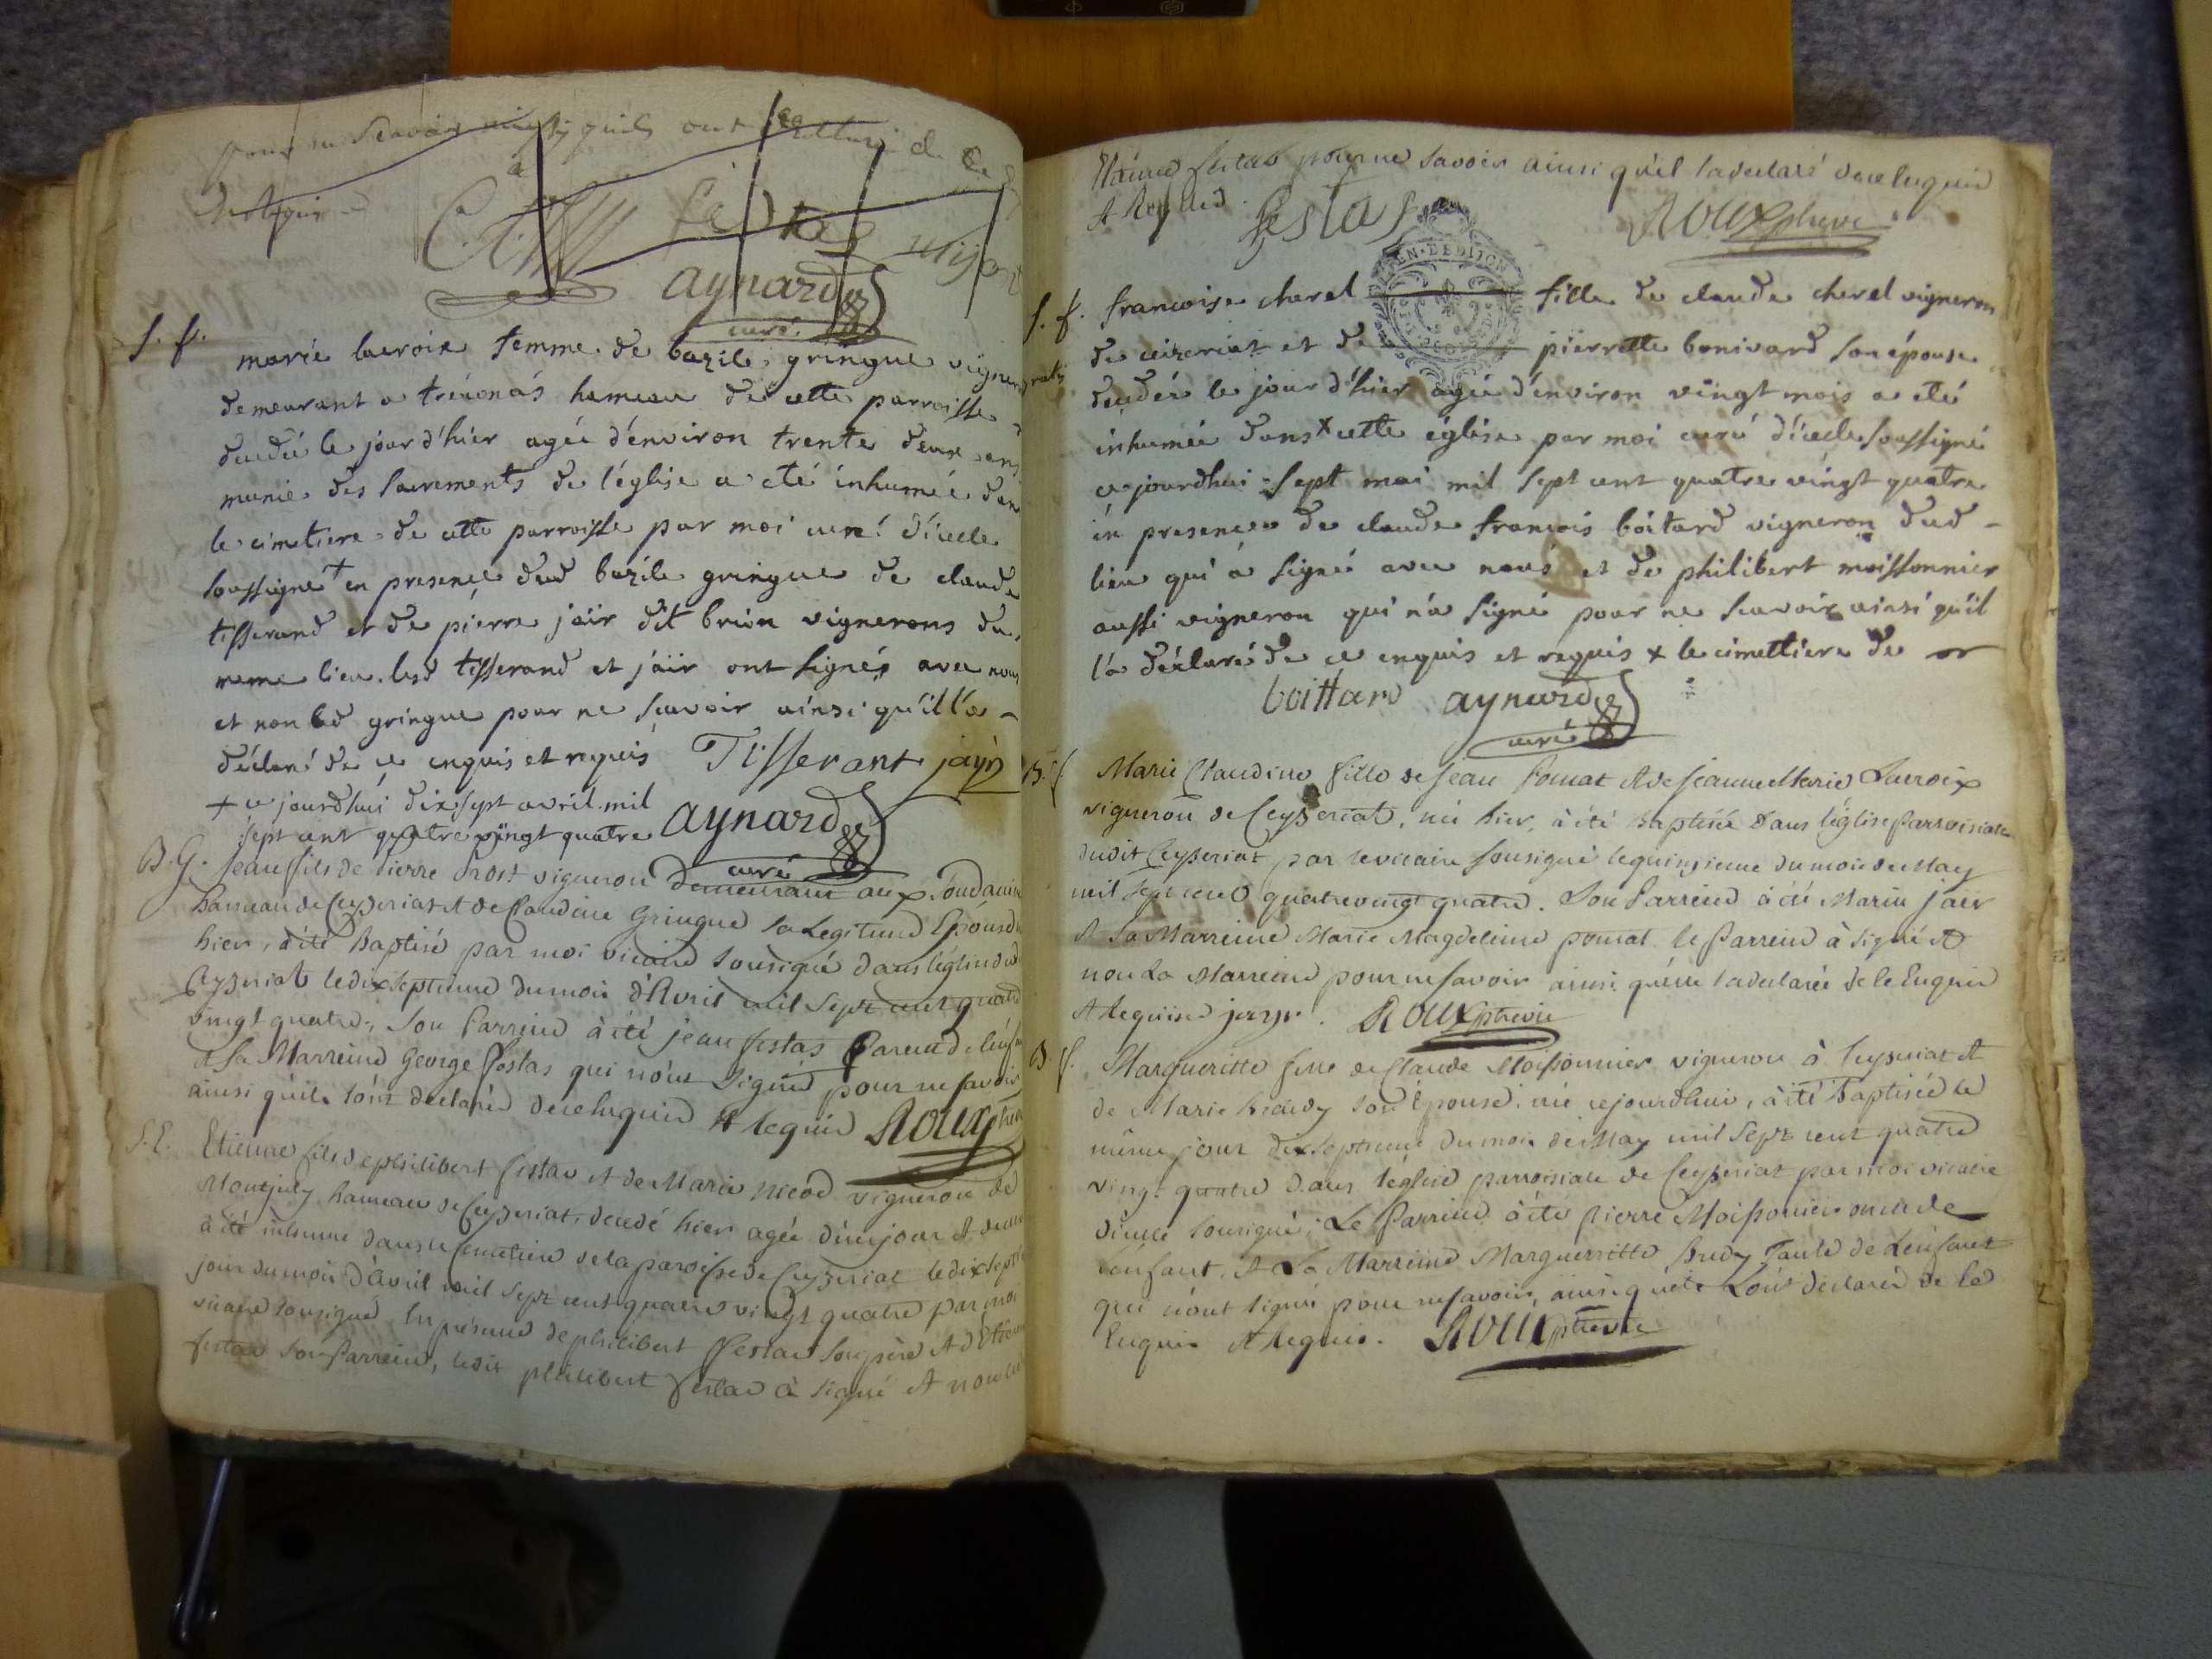 pour ne Scavoir ainsy quils ont declaré de ce
et requis
festas
aynard
curé
S. f.
marie lacroix femme de bazile gringue vigneron
demeurant a tréconas hameau de cette parroisse
decedée le jour d'hier agée d'énviron trente deux ans
munie des sacrements de l'église a eté inhumée dans
le cimetiere de cette parroisse par moi curé d'icelle
soussigné + en presence dud bazile gringue de claude
tisserand et de pierre jaïr dit brion vignerons du
meme lieu. lesd tisserand et jaïr ont signés avec nous
et non led gringue pour ne scavoir ainsi qu'il l'a
déclaré de ce enquis et requis Tisserant jaÿr
+ ce jourdhui dix sept avril mil
sept cent quatre vingt quatre aynard
curé
B. G. Jean fils de Pierre Prost vigneron demeurant aux
hameau de Ceyseriat et de Claudine Gringue sa Legitime Epouse
hier, a été Baptisé par moi vicaire sousigné dans l'église dud
Ceyseriat le dix Septieme du mois d'Avril mil Sept cent quatre
vingt quatre, son Parrein à été jean festas
et sa Marreine George festas qui n'ont Signés pour ne savoir
ainsi qu'ils l'ont declarés de ce Enquis et Requis Roux ptre
S. E. Etienne fils de philibert festas et de Marie nicod vigneron de
Montjuly hameau de Ceyseriat, decedé hier agée d'un jour et demi
à été inhumé dans le Cemetiere de la paroisse de Ceyseriat le dix septieme
jour du mois d'Avril mil Sept cent quatre vingt quatre par moi
vicaire sousigné En présence de philibert festas son père et d'Etienne
festas son Parrein, ledit philibert festas à signé et non
Etienne festas pour ne savoir ainsi qu'il l'a declaré de ce Enquis
et Requis. festas Roux ptre
GEN. DE DIJON
S. f. francoise cherel fille de claude cherel vigneron
de ceizeriat et de pierrette bonivard son épouse
decedée le jour d'hier agée d'énviron vingt mois a eté
inhumée dans x cette église par moi curé d'icelle soussigné
ce jourdhui sept mai mil sept cent quatre vingt quatre
én presence de claude francois boitard vigneron dud
lieu qui a signé avec nous et de philibert moissonnier
aussi vigneron qui n'a signé pour ne scavoir ainsi qu'il
l'a déclaré de ce enquis et requis x le cimettiere de
boittard aynard
curé
B. f. Marie Claudine fille de Jean Pomat et de Jeanne Marie Lacroix
vigneron de Ceyseriat, née hier, à été Baptisée dans l'église Parroisiale
dudit Ceyseriat par le vicaire sousigné le quinzieme du mois de May
mil sept cent quatrevingt quatre. Son Parrein à été Marin jaïr
et Sa Marreine Marie Magdeleine pomat. le Parrein à signé et
non La Marreine pour ne savoir ainsi qu'elle l'a declarée de Ce Enquis
et Requise jayr. Roux ptre
B. f. Margueritte fille de Claude Moissonnier vigneron à Ceyseriat et
de Marie son Epouse. née cejourdhui, à été Baptisée le
même jour dix septieme du mois de May mil Sept cent quatre
vingt quatre dans l'église parroisiale de Ceyseriat par moi vicaire
d'icelle sousigné. Le Parrein à été pierre Moissonier oncle de
l'enfant, et La Marreine Margueritte Tante de L'enfant
qui n'ont signés pour ne savoir, ainsi qu'ils L'ont déclarés de Ce
Enquis et Requis. Roux ptre